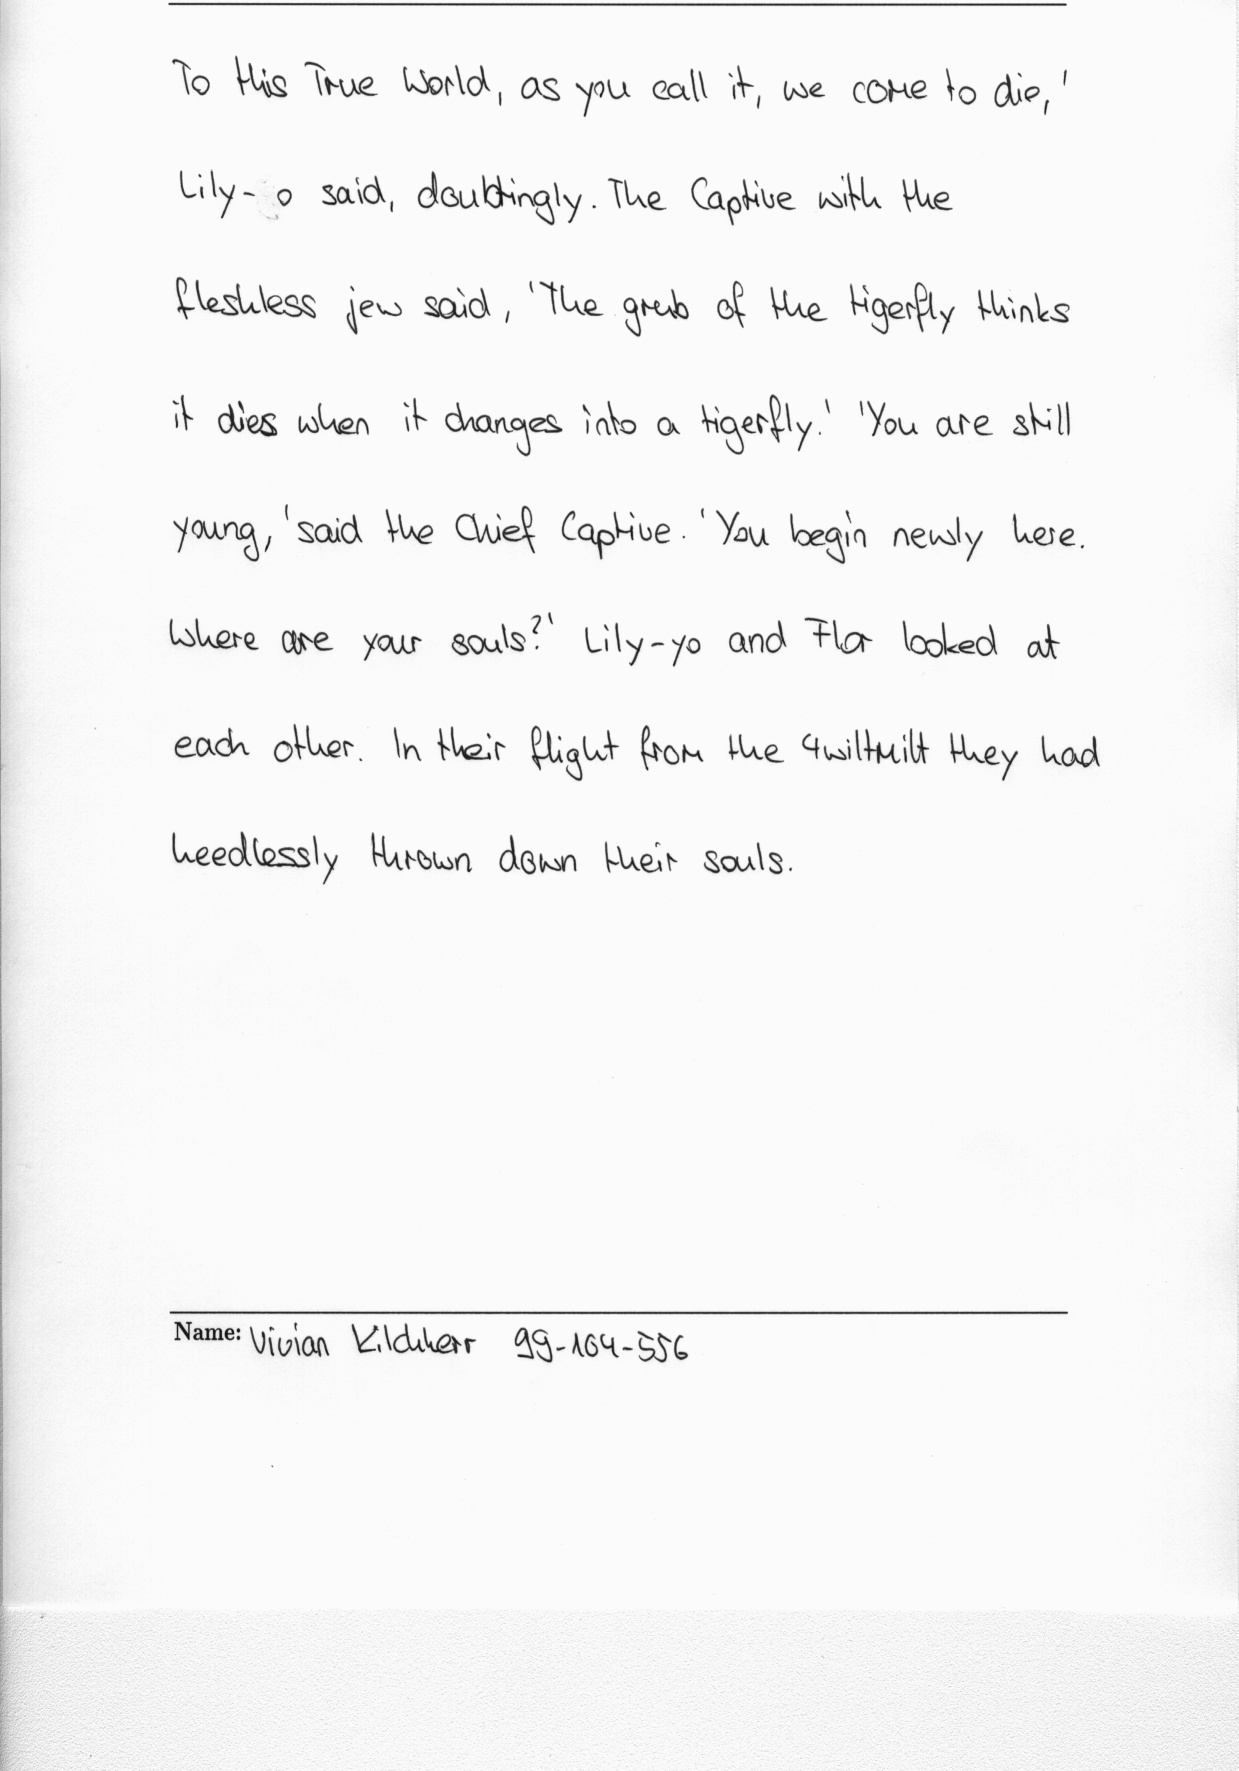 To this True World, as you call it, we come to die,'
Lily-o said, doubtingly. The Captive with the
fleshless jew said, 'The grub of the tigerfly thinks
it dies when it changes into a tigerfly.' 'You are still
young, 'said the Chief Captive. 'You begin newly here.
Where are your souls?' Lily-yo and Flor looked at
each other. In their flight from the 4wiltmilt they had
heedlessly thrown down their souls.
Name: Vivian Kilchherr 99-104-556